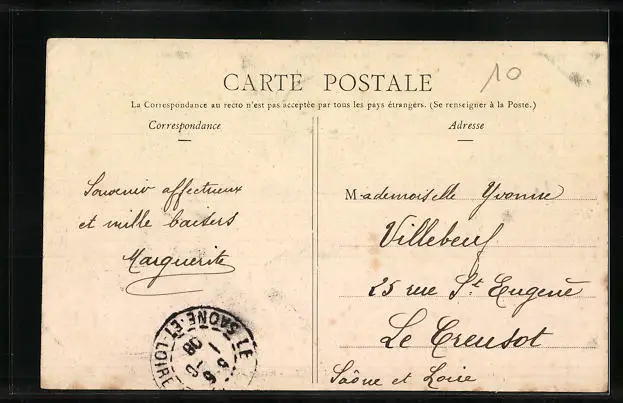 CARTE POSTALE
10
La Correspondance au recto n'est pas acceptée par tous les pays étrangers. (Se renseigner à la Poste.)
Correspondance
Adresse
Souvenir affectueux
et mille baisers
Marguerite
Mademoiselle Yvonne
Villebeuf
25 rue St. Eugenè
Le Creusot
Saône et Loire
LE
SAONE-ET-LOIRE
08